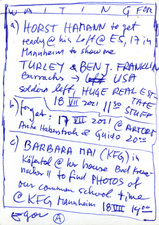 WAITING FOR
a) HORST HAMANN to get
ready @ his Loft @ E5, 17 in
Mannheim to show me
TURLEY & BEN J. FRANKLIN
Barracks → USA
soldiers left, HUGE REAL ESTATE
18 VII 2011 11:30 STUFF
b) forget: 17 VII 2011 @ ARTORT
Anne & Guido 20:00
c) BARBARA MAI (KFG) in
Käfertal @ her house Bad
to find PHOTOS of
our common school time
@ KFG Mannheim 18 VII 14:00